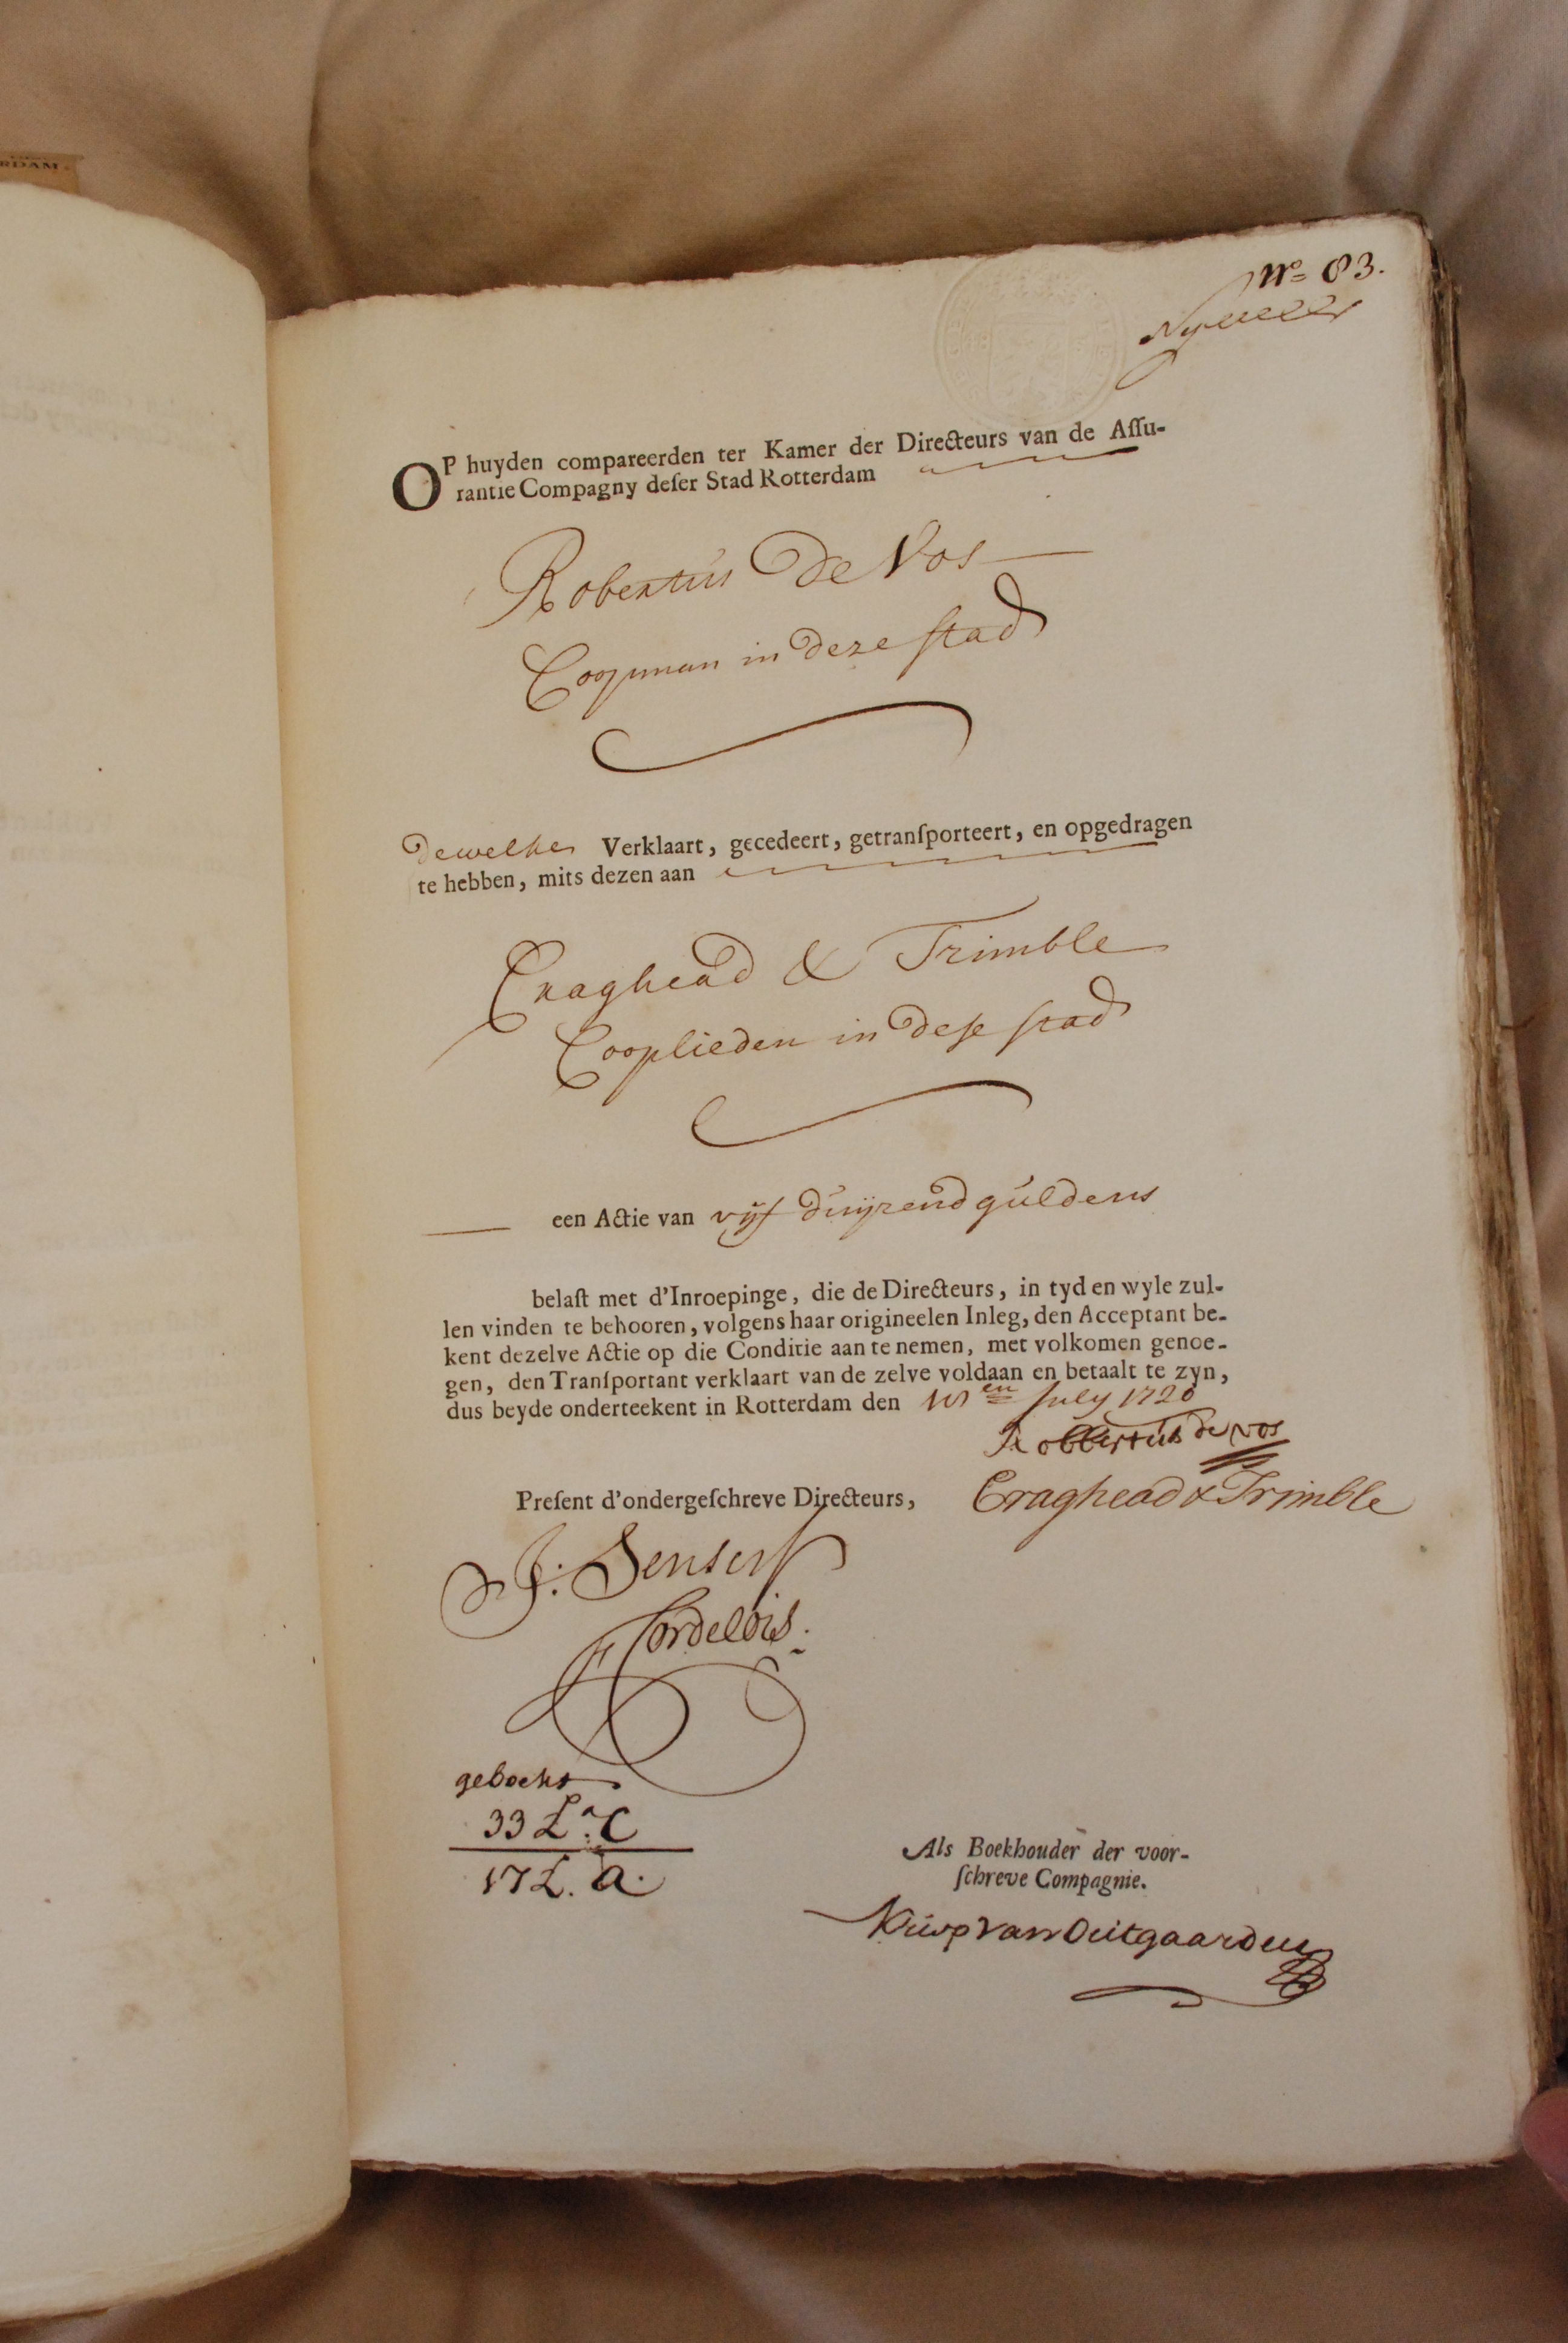 RDAM
No 83.
OP huyden compareerden ter Kamer der Directeurs van de Aſſu-
rantie Compagny deſer Stad Rotterdam
Robertus De Vos
Coopman in deze stad
dewelke Verklaart, gecedeert, getranſporteert, en opgedragen
te hebben, mits dezen aan
Craghead & Trimble
Cooplieden in dese stad
een Actie van vijf duijzend guldens
belaſt met d'Inroepinge, die de Directeurs, in tyd en wyle zul-
len vinden te behooren, volgens haar origineelen Inleg, den Acceptant be-
kent dezelve Actie op die Conditie aan te nemen, met volkomen genoe-
gen, den Tranſportant verklaart van de zelve voldaan en betaalt te zyn,
dus beyde onderteekent in Rotterdam den July 1720
Robbertus de vos
Preſent d'ondergeſchreve Directeurs, Craghead & Trimble
J: Senserff
Cordelois.
geboekt
33 La. C
17 L. a.
Als Boekhouder der voor-
ſchreve Compagnie.
van Outgaarden